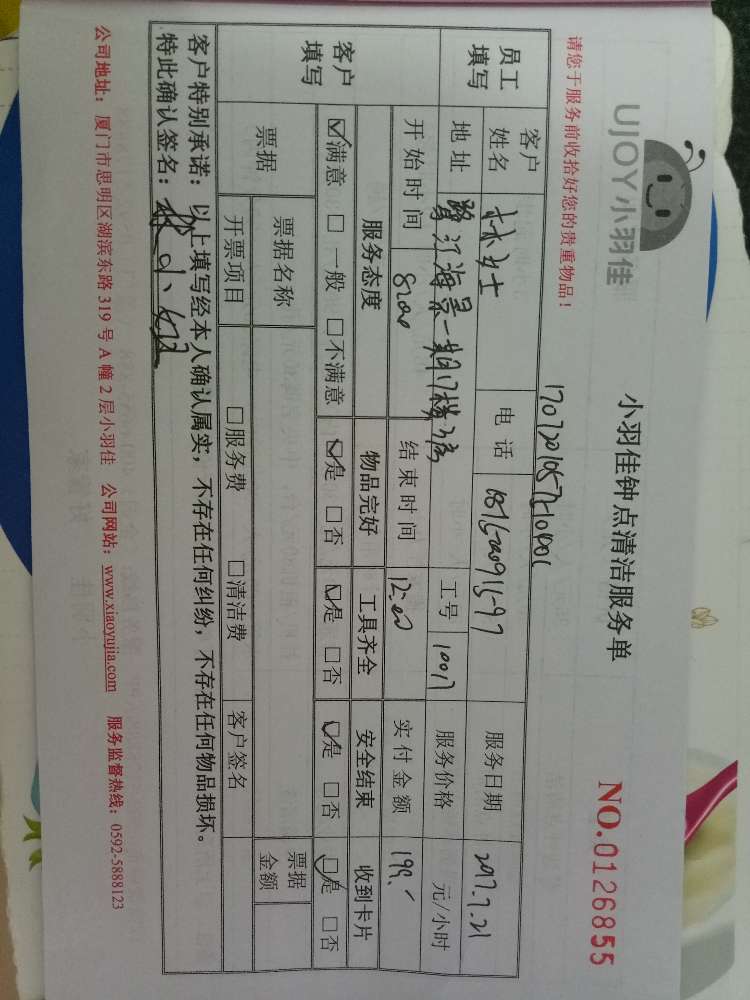 UJOY小羽佳
小羽佳钟点清洁服务单
NO.0126855
请您于服务前收拾好您的贵重物品！
员工填写
客户姓名 林女士 电话 服务日期 2017.7.21
地址 海景一期17楼 工号 10017 服务价格 元/小时
开始时间 8:00 结束时间 12:00 实付金额 199.
客户填写
服务态度 物品完好 工具齐全 安全结束 收到卡片
☑满意 □一般 □不满意 ☑是 □否 ☑是 □否 ☑是 □否 ☑是 □否
票据 票据名称 票据金额
开票项目 □服务费 □清洁费 客户签名
客户特别承诺：以上填写经本人确认属实，不存在任何纠纷，不存在任何物品损坏。
特此确认签名：
公司地址：厦门市思明区湖滨东路 319 号 A 幢 2 层小羽佳 公司网站：www.xiaoyujia.com 服务监督热线：0592-5888123